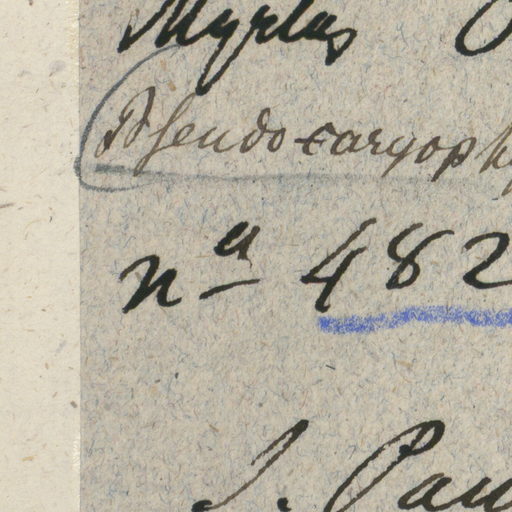 Myrtus
Pseudo-caryoph
nª 482
S. Pau